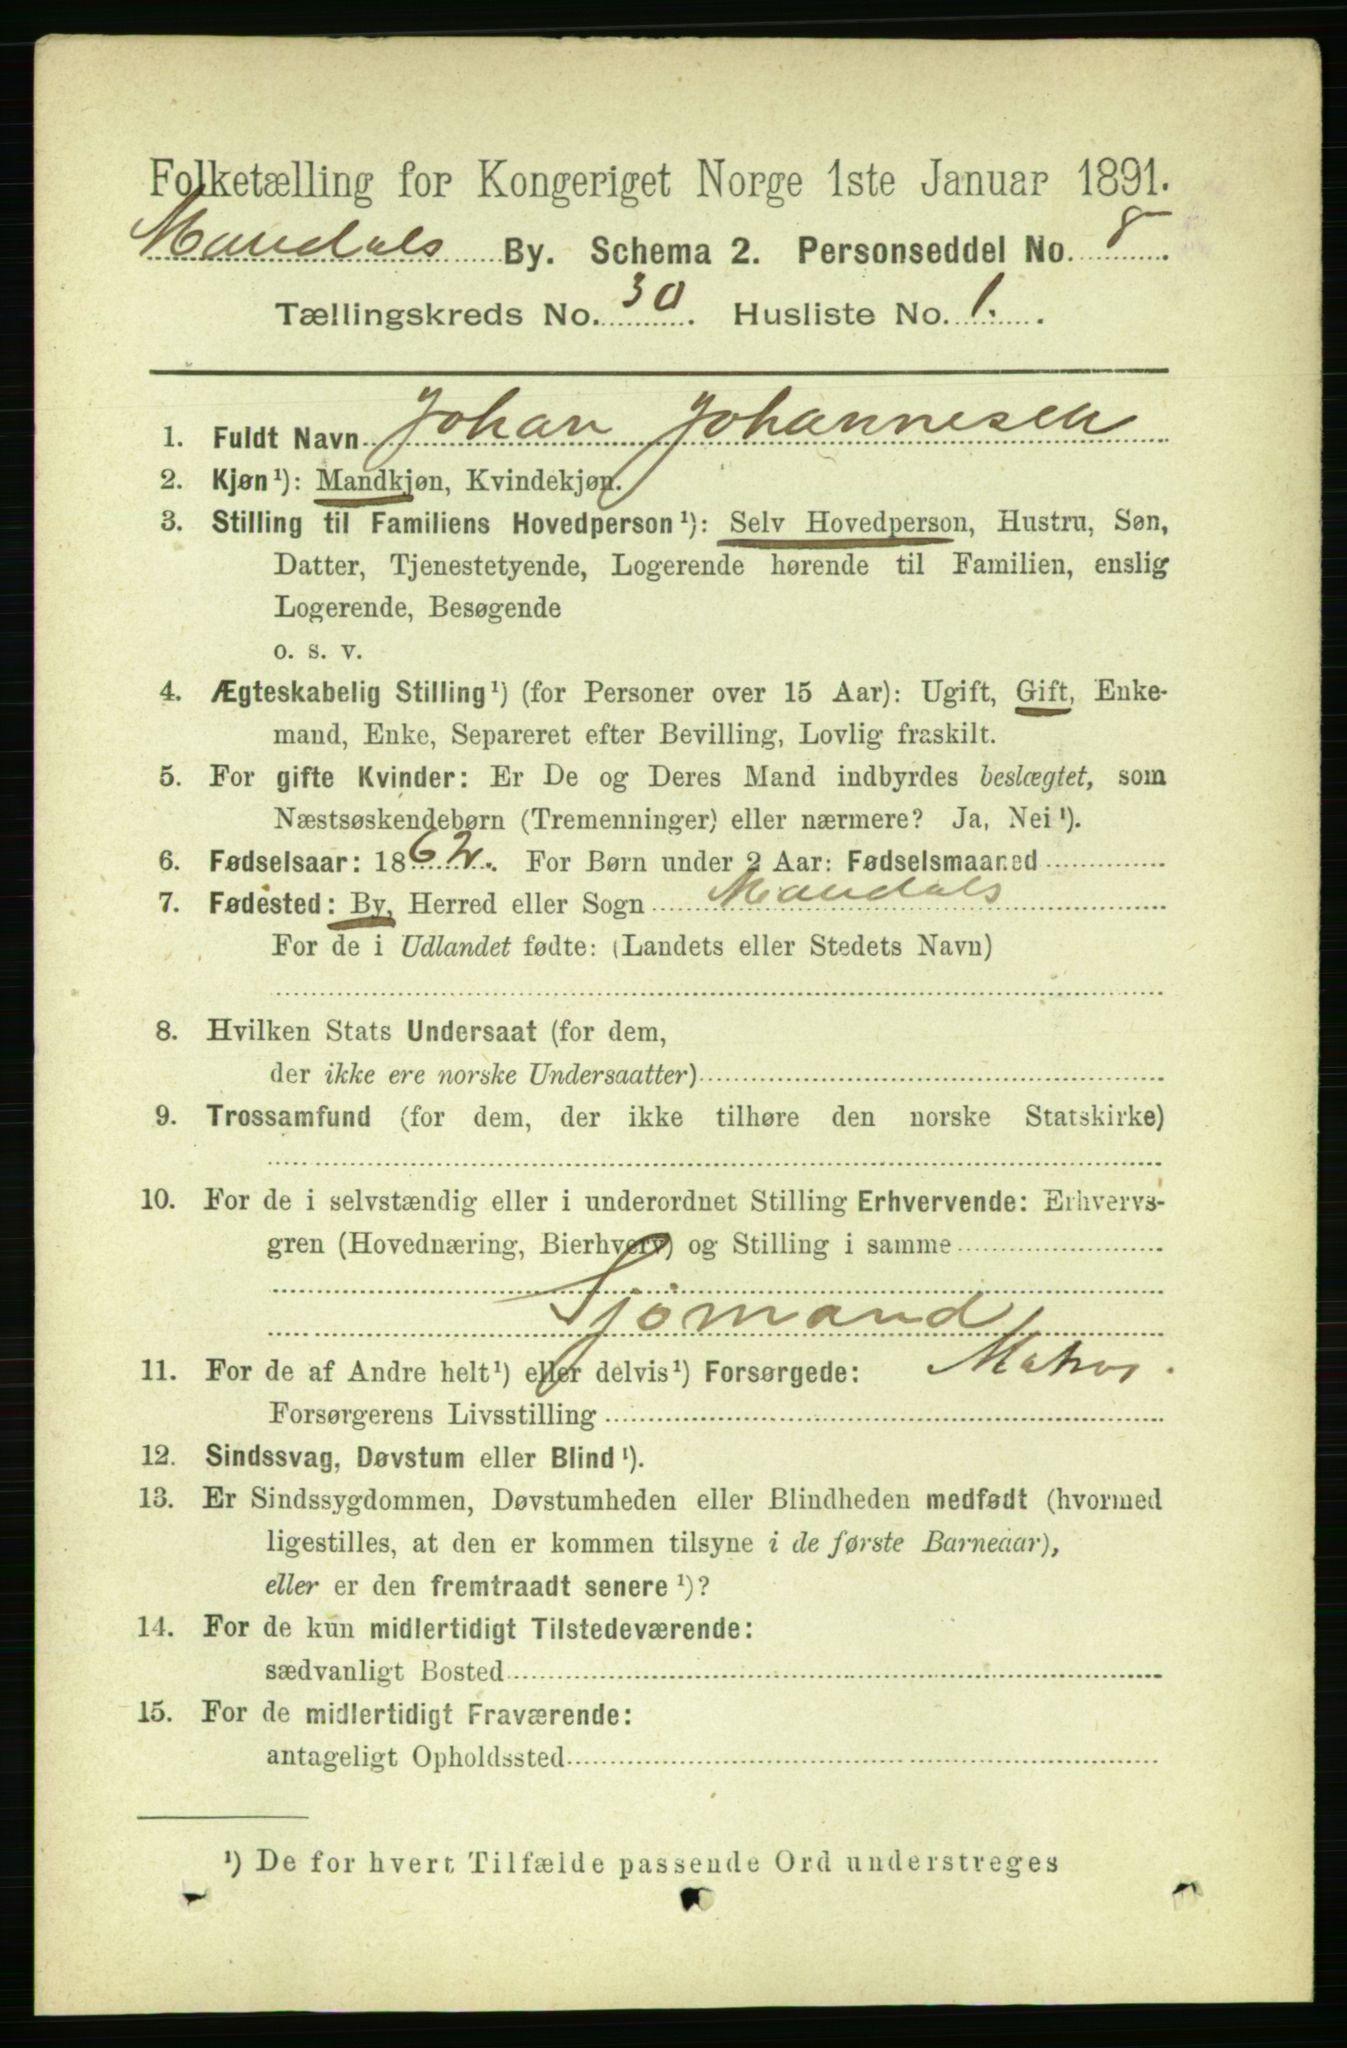 Folketælling for Kongeriget Norge 1ste Januar 1891.
Mandals By. Schema 2. Personseddel No. 8.
Tællingskreds No. 30. Husliste No. 1.
1. Fuldt Navn Johan Johannesen
2. Kjøn¹): Mandkjøn, Kvindekjøn.
3. Stilling til Familiens Hovedperson¹): Selv Hovedperson, Hustru, Søn,
Datter, Tjenestetyende, Logerende hørende til Familien, enslig
Logerende, Besøgende
o. s. v.
4. Ægteskabelig Stilling¹) (for Personer over 15 Aar): Ugift, Gift, Enke-
mand, Enke, Separeret efter Bevilling, Lovlig fraskilt.
5. For gifte Kvinder: Er De og Deres Mand indbyrdes beslægtet, som
Næstsøskendebørn (Tremenninger) eller nærmere? Ja, Nei¹).
6. Fødselsaar: 1862. For Børn under 2 Aar: Fødselsmaaned
7. Fødested: By, Herred eller Sogn Mandals
For de i Udlandet fødte: (Landets eller Stedets Navn)
8. Hvilken Stats Undersaat (for dem,
der ikke ere norske Undersaatter)
9. Trossamfund (for dem, der ikke tilhøre den norske Statskirke)
10. For de i selvstændig eller i underordnet Stilling Erhvervende: Erhvervs-
gren (Hovednæring, Bierhverv) og Stilling i samme
Sjömand
Matros.
11. For de af Andre helt¹) eller delvis¹) Forsørgede:
Forsørgerens Livsstilling
12. Sindssvag, Døvstum eller Blind¹).
13. Er Sindssygdommen, Døvstumheden eller Blindheden medfødt (hvormed
ligestilles, at den er kommen tilsyne i de første Barneaar),
eller er den fremtraadt senere¹)?
14. For de kun midlertidigt Tilstedeværende:
sædvanligt Bosted
15. For de midlertidigt Fraværende:
antageligt Opholdssted
¹) De for hvert Tilfælde passende Ord understreges